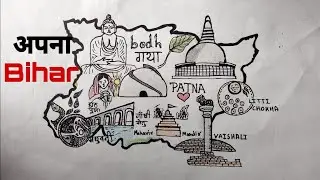 अपना
Bihar
bodh
गया
PATNA
LITTI
CHOKHA
छठ
पूजा
गाँधी
सेतु
Mahavir
Mandir
VAISHALI